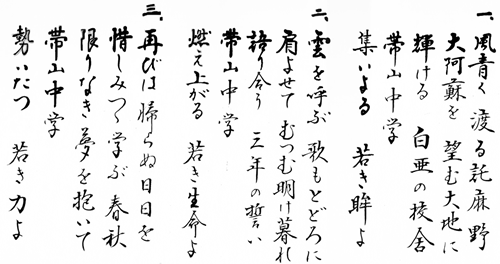 一、風青く渡る託麻野
大阿蘇を 望む大地に
輝ける 白亜の校舎
帯山中学
集いよる 若き眸よ
二、雲を呼ぶ 歌もとどろに
肩よせて むつむ明け暮れ
語り合う 三年の誓い
帯山中学
燃え上がる 若き生命よ
三、再びは 帰らぬ日日を
惜しみつゝ 学ぶ 春秋
限りなき 夢を抱いて
帯山中学
勢いたつ 若き力よ